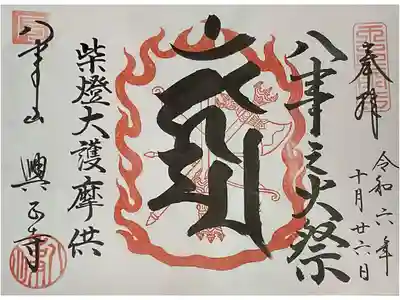 奉拝
令和六年
十月廿六日
八事之火祭
柴燈大護摩供
八事山 興正寺